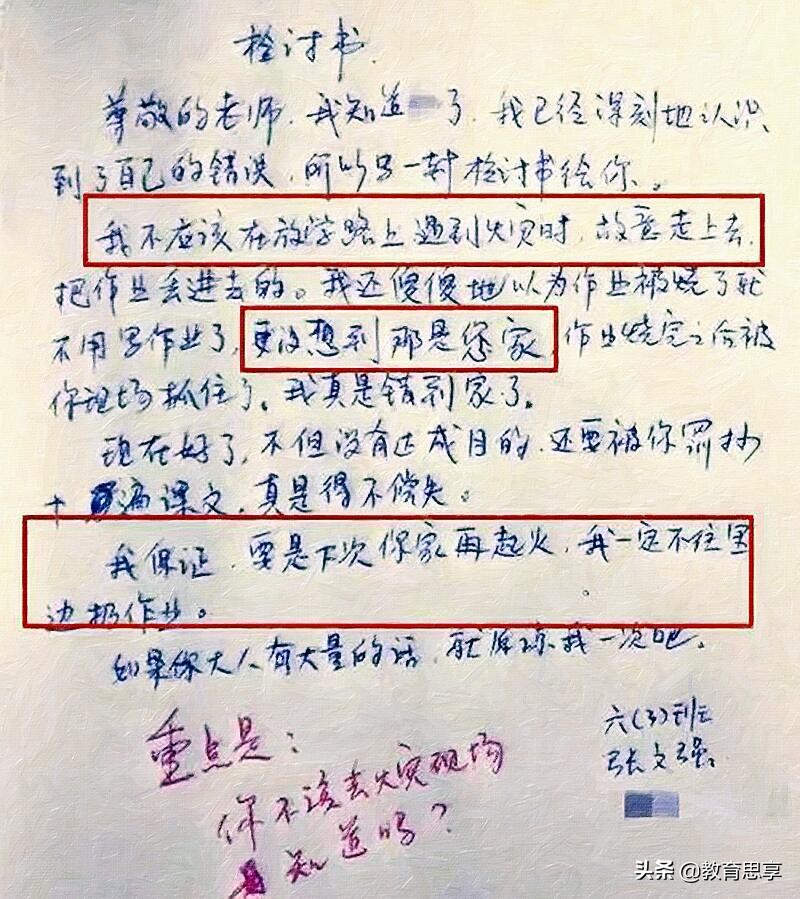 检讨书
尊敬的老师，我知道 了，我已经深刻地认识
到了自己的错误，所以写一封检讨书给你。
我不应该在放学路上遇到火灾时，故意走上去，
把作业丢进去的。我还傻傻地以为作业被烧了就
不用写作业了，更没想到那是您家，作业烧完之后被
你现场抓住了。我真是错到家了。
现在好了，不但没有达成目的，还要被你罚抄
十遍课文，真是得不偿失。
我保证，要是下次你家再起火，我一定不往里
边扔作业。
如果你大人有大量的话，就原谅我一次吧。
六(3)班
张文强
重点是：
你不该去火灾现场
知道吗？
头条 @教育思享